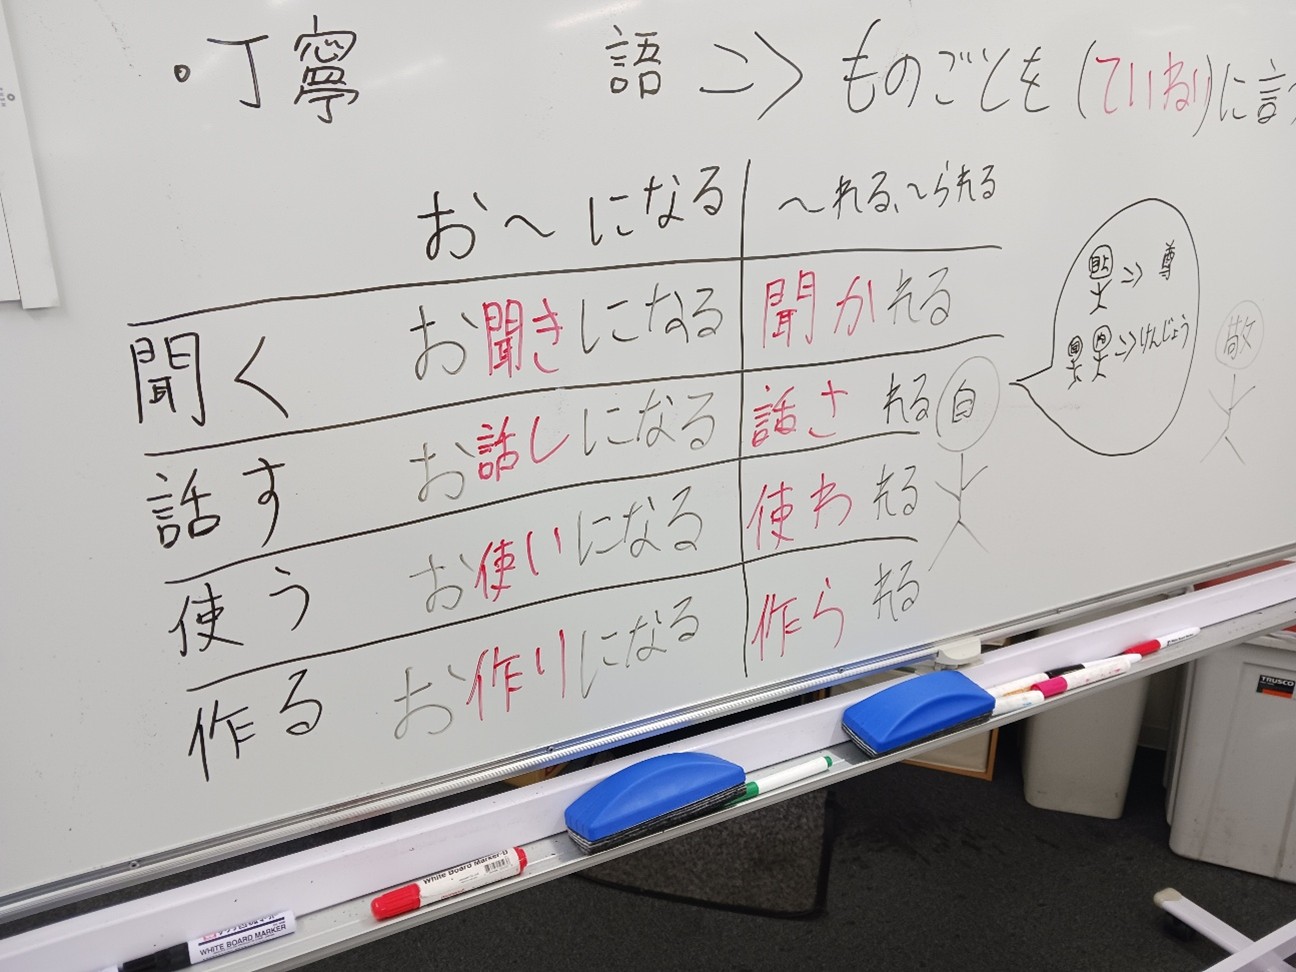 ・丁寧語 => ものごとを(ていねい)に言う
お〜になる 〜れる、〜られる
聞く お聞きになる 聞かれる
話す お話しになる 話される
使う お使いになる 使われる
作る お作りになる 作られる
=> 尊
内 => けんじょう
自
敬
TRUSCO
White Board Marker
WHITE BOARD MARKER